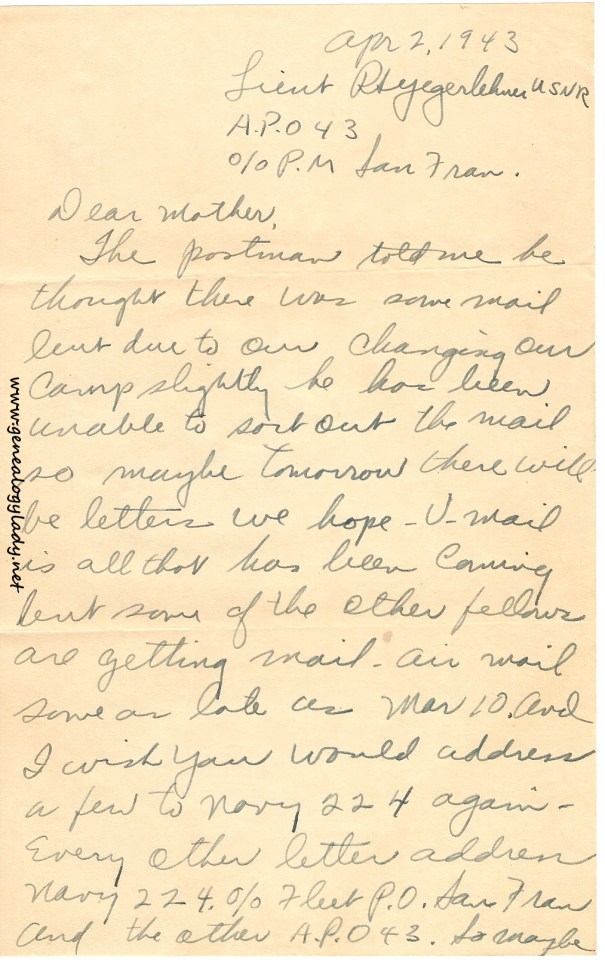 Apr 2, 1943
Lieut R H Yegerlehner USNR
A.P.O 43
c/o P.M San Fran.
Dear Mother,
The postman told me he
thought there was some mail
but due to our changing our
camp slightly he has been
unable to sort out the mail
so maybe tomorrow there will
be letters we hope - V-mail
is all that has been coming
but some of the other fellows
are getting mail - air mail
some as late as Mar 10. And
I wish you would address
a few to Navy 224 again -
Every other letter address
Navy 224. c/o Fleet P.O. San Fran
and the other A.P.O 43. So maybe
www.genealogylady.net